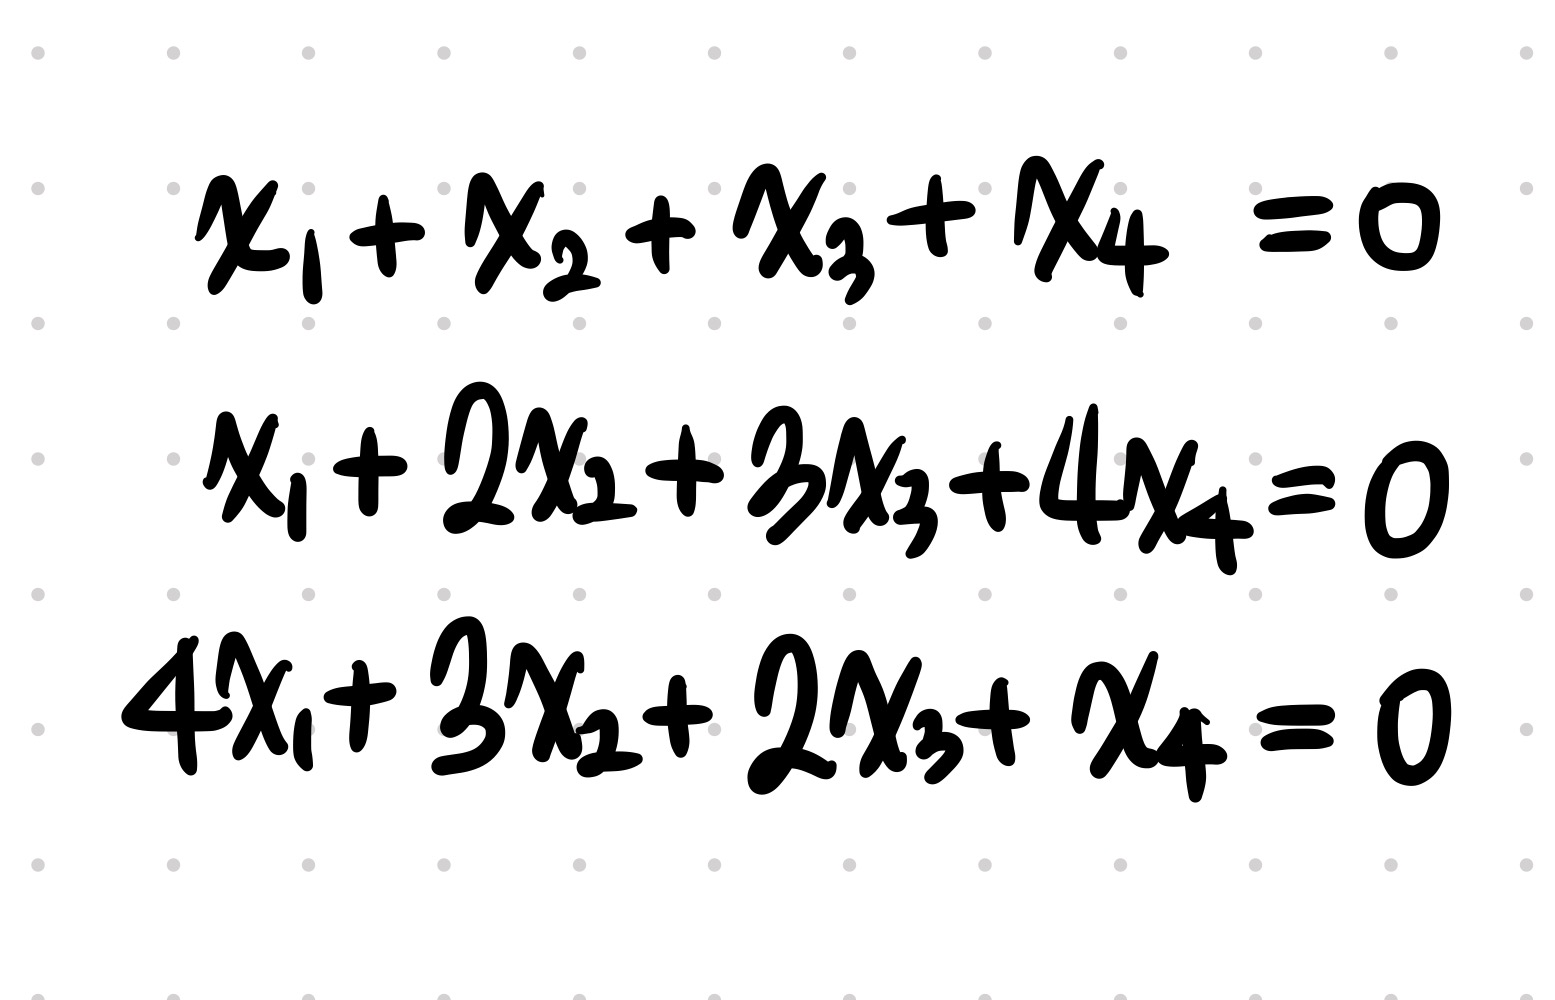 x₁ + x₂ + x₃ + x₄ = 0
x₁ + 2x₂ + 3x₃ + 4x₄ = 0
4x₁ + 3x₂ + 2x₃ + x₄ = 0